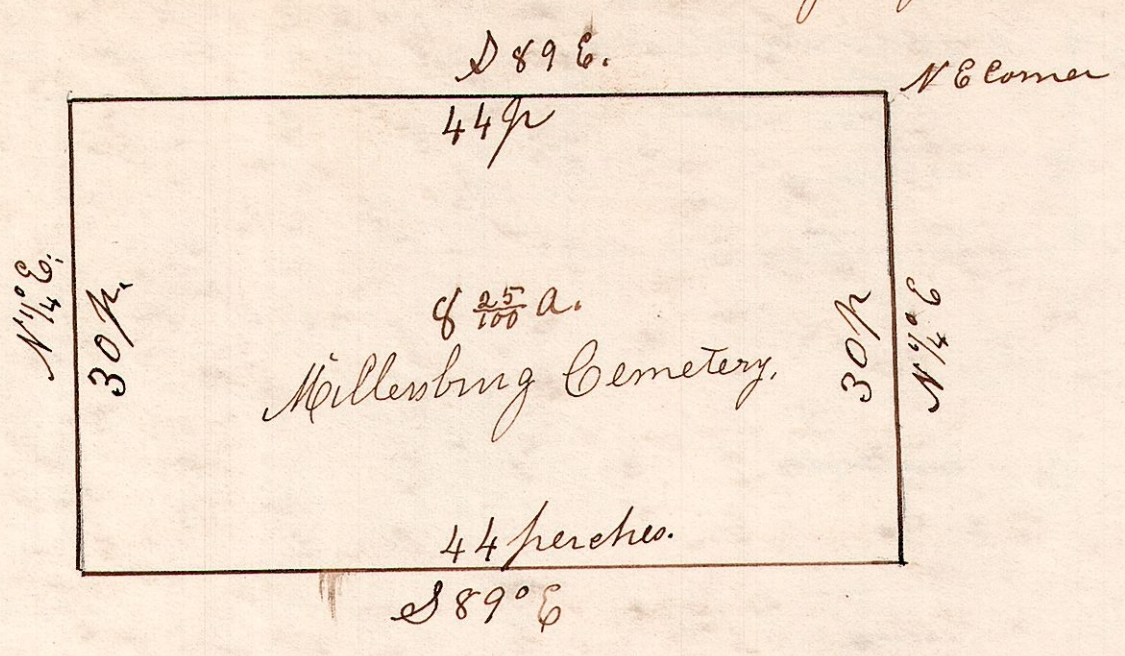 S 89 E.
N E Corner
44 p
N 1/4° E.
30 p.
8 25/100 a.
Millersburg Cemetery.
30 p
N 1/4° E
44 perches.
S 89° E